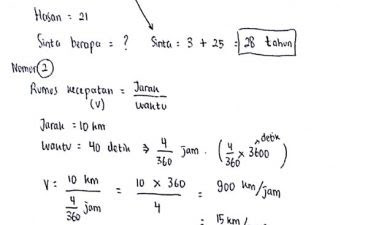 Hasan = 21
Sinta berapa = ? Sinta = 3 + 25 = 28 tahun
Nomer 2
Rumus kecepatan (v) = Jarak / waktu
Jarak = 10 km
waktu = 40 detik ⇒ 4/360 jam . (4/360 × 3600) detik
V = 10 km / 4/360 jam = 10 × 360 / 4 = 900 km/jam
= 15 km/